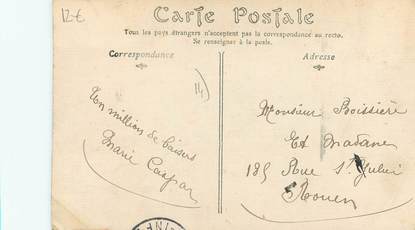 12€
Carte Postale
Tous les pays étrangers n'acceptent pas la correspondance au recto.
Se renseigner à la poste.
Correspondance
Adresse
14
Un million de baisers
Marie Caspar
Monsieur Boissière
Et Madame
185 Rue St Julien
Rouen